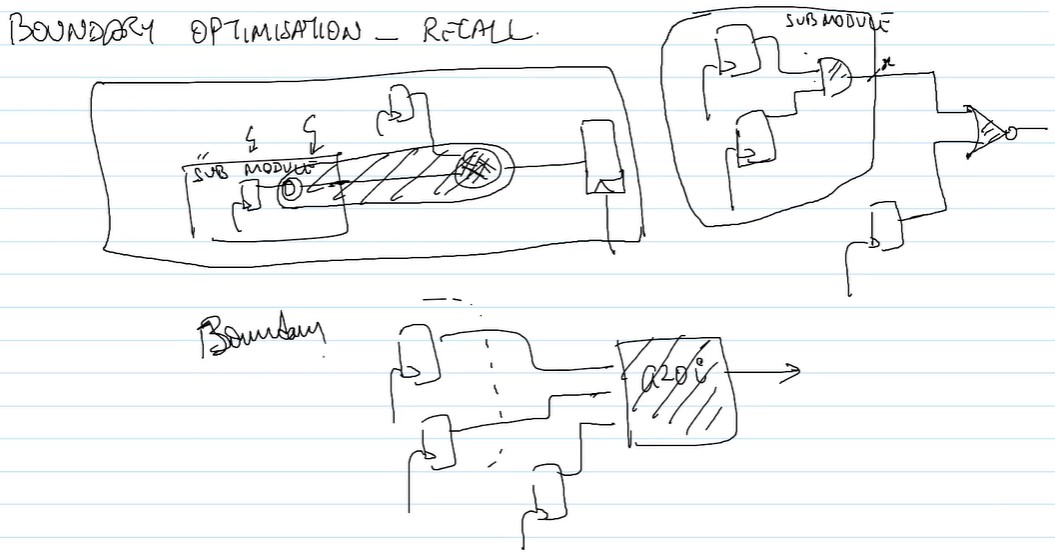 BOUNDARY OPTIMISATION - RECALL.
SUB MODULE
"SUB MODULE
x
Boundary
a2oi